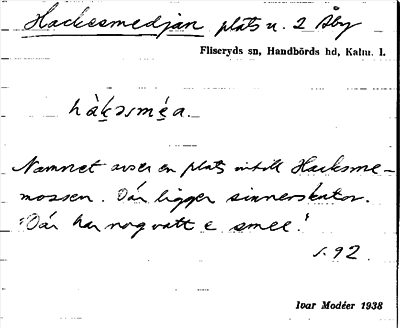 Hackesmedjan plats n. 2 Åby
Fliseryds sn, Handbörds hd, Kalm. l.
hàk̬əsmę́a.
Namnet avser en plats intill Hacksme-
mossen. Där ligger sinnerskator.
"Där har nog vatt e smee."
s. 92.
Ivar Modéer 1938